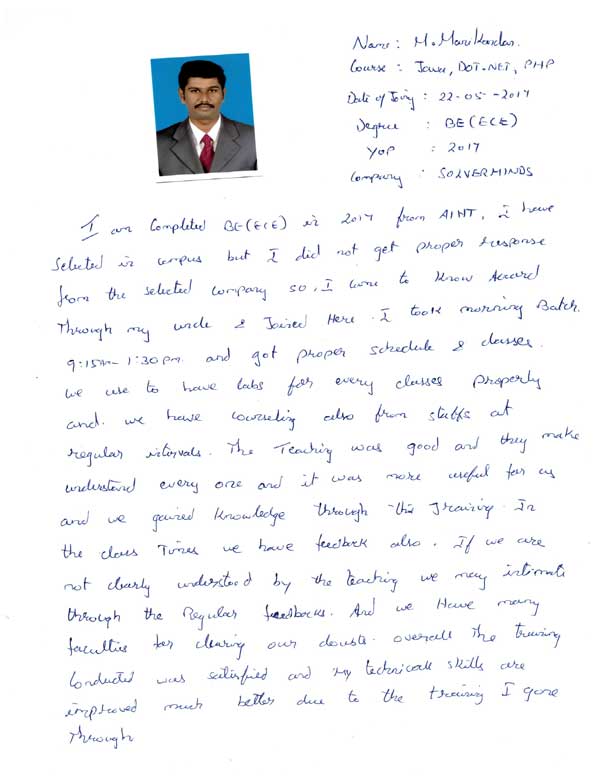 Name : M. Manikandan.
Course : Java, DOT.NET, PHP
Date of Joing : 22-05-2017
Degree : BE(ECE)
YOP : 2017
Company : SOLVERMINDS
I am Completed BE(ECE) in 2017 from AIHT, I have
Selected in campus but I did not get proper response
from the selected company so, I came to know Accord
Through my uncle & Joined Here. I took morning Batch.
9:15AM - 1:30PM. and got proper schedule & classes.
we use to have labs for every classes properly
and. we have counseling also from staffs at
regular intervals. The Teaching was good and they make
understand every one and it was more useful for us
and we gained knowledge through this Training. In
the class Times we have feedback also. If we are
not clearly understood by the teaching we may intimate
through the Regular feedbacks. And we Have many
faculties for clearing our doubts. overall The training
Conducted was satisfied and my technicall skills are
improved much better due to the training I gone
Through